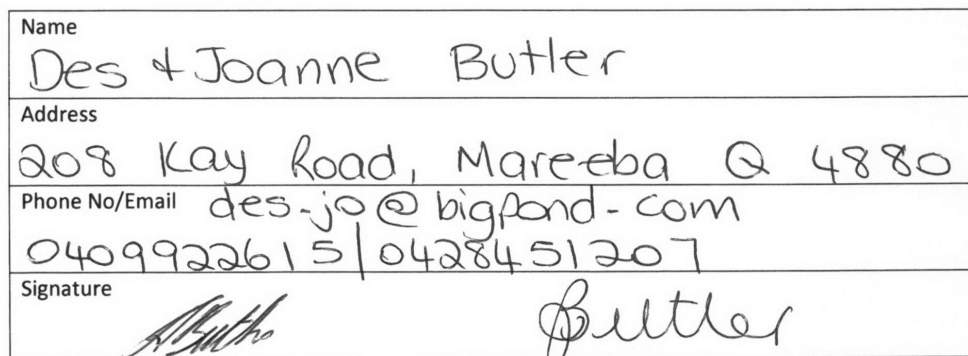 Name
Des + Joanne Butler
Address
208 Kay Road, Mareeba Q 4880
Phone No/Email des-jo@bigpond-com
0409922615|0428451207
Signature
Butler